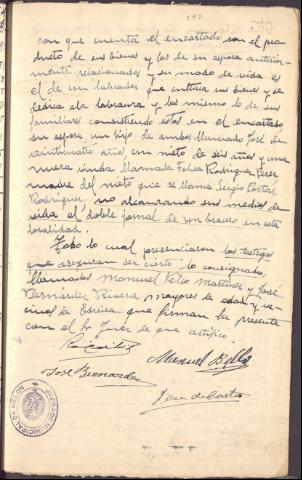 242
con que cuenta el encartado son el pro
ducto de sus bienes y los de su esposa anterior
mente relacionados y su modo de vida es
el de un labrador que cultiva sus bienes y se
dedica a la labranza y los mismo lo de sus
familiares consistiendo estos en el encartado
su esposa, un hijo de ambos llamado José de
veintiuatro años, un nieto de seis años y una
nuera viuda llamada Felisa Rodriguez Perez
madre del nieto que se llama Sergio Portal
Rodriguez no alcanzando sus medios de
vida el doble jornal de un bracero en esta
localidad.
Todo lo cual presenciaron los testigos
que aseguran ser cierto lo consignado,
llamados Manuel Bello Martinez y José
Bernardez Rivera mayores de edad y ve
cinos de que firman la presente
con el Sr. Juez de que certifico.
Manuel Bello
José Bernardez
Jose de Castro
JUZGADO MUNICIPAL DE MELON